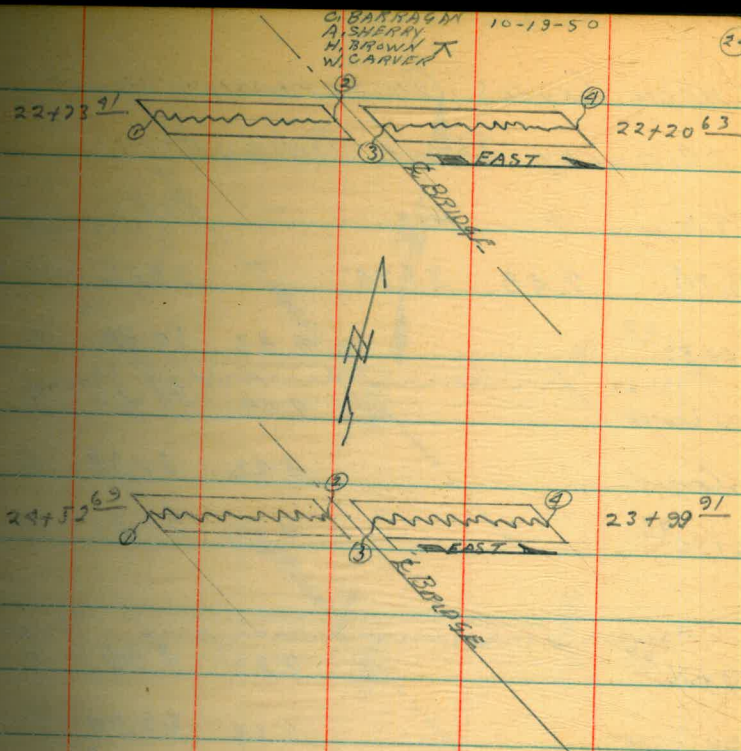 C. BARRAGAN 10-19-50
A. SHERRY
H. BROWN
W. CARVER
22+73 41 ① ② ③ ④ 22+20 63
EAST
℄ BRIDGE
N
24+52 69 ① ② ③ ④ 23+99 91
EAST
℄ BRIDGE